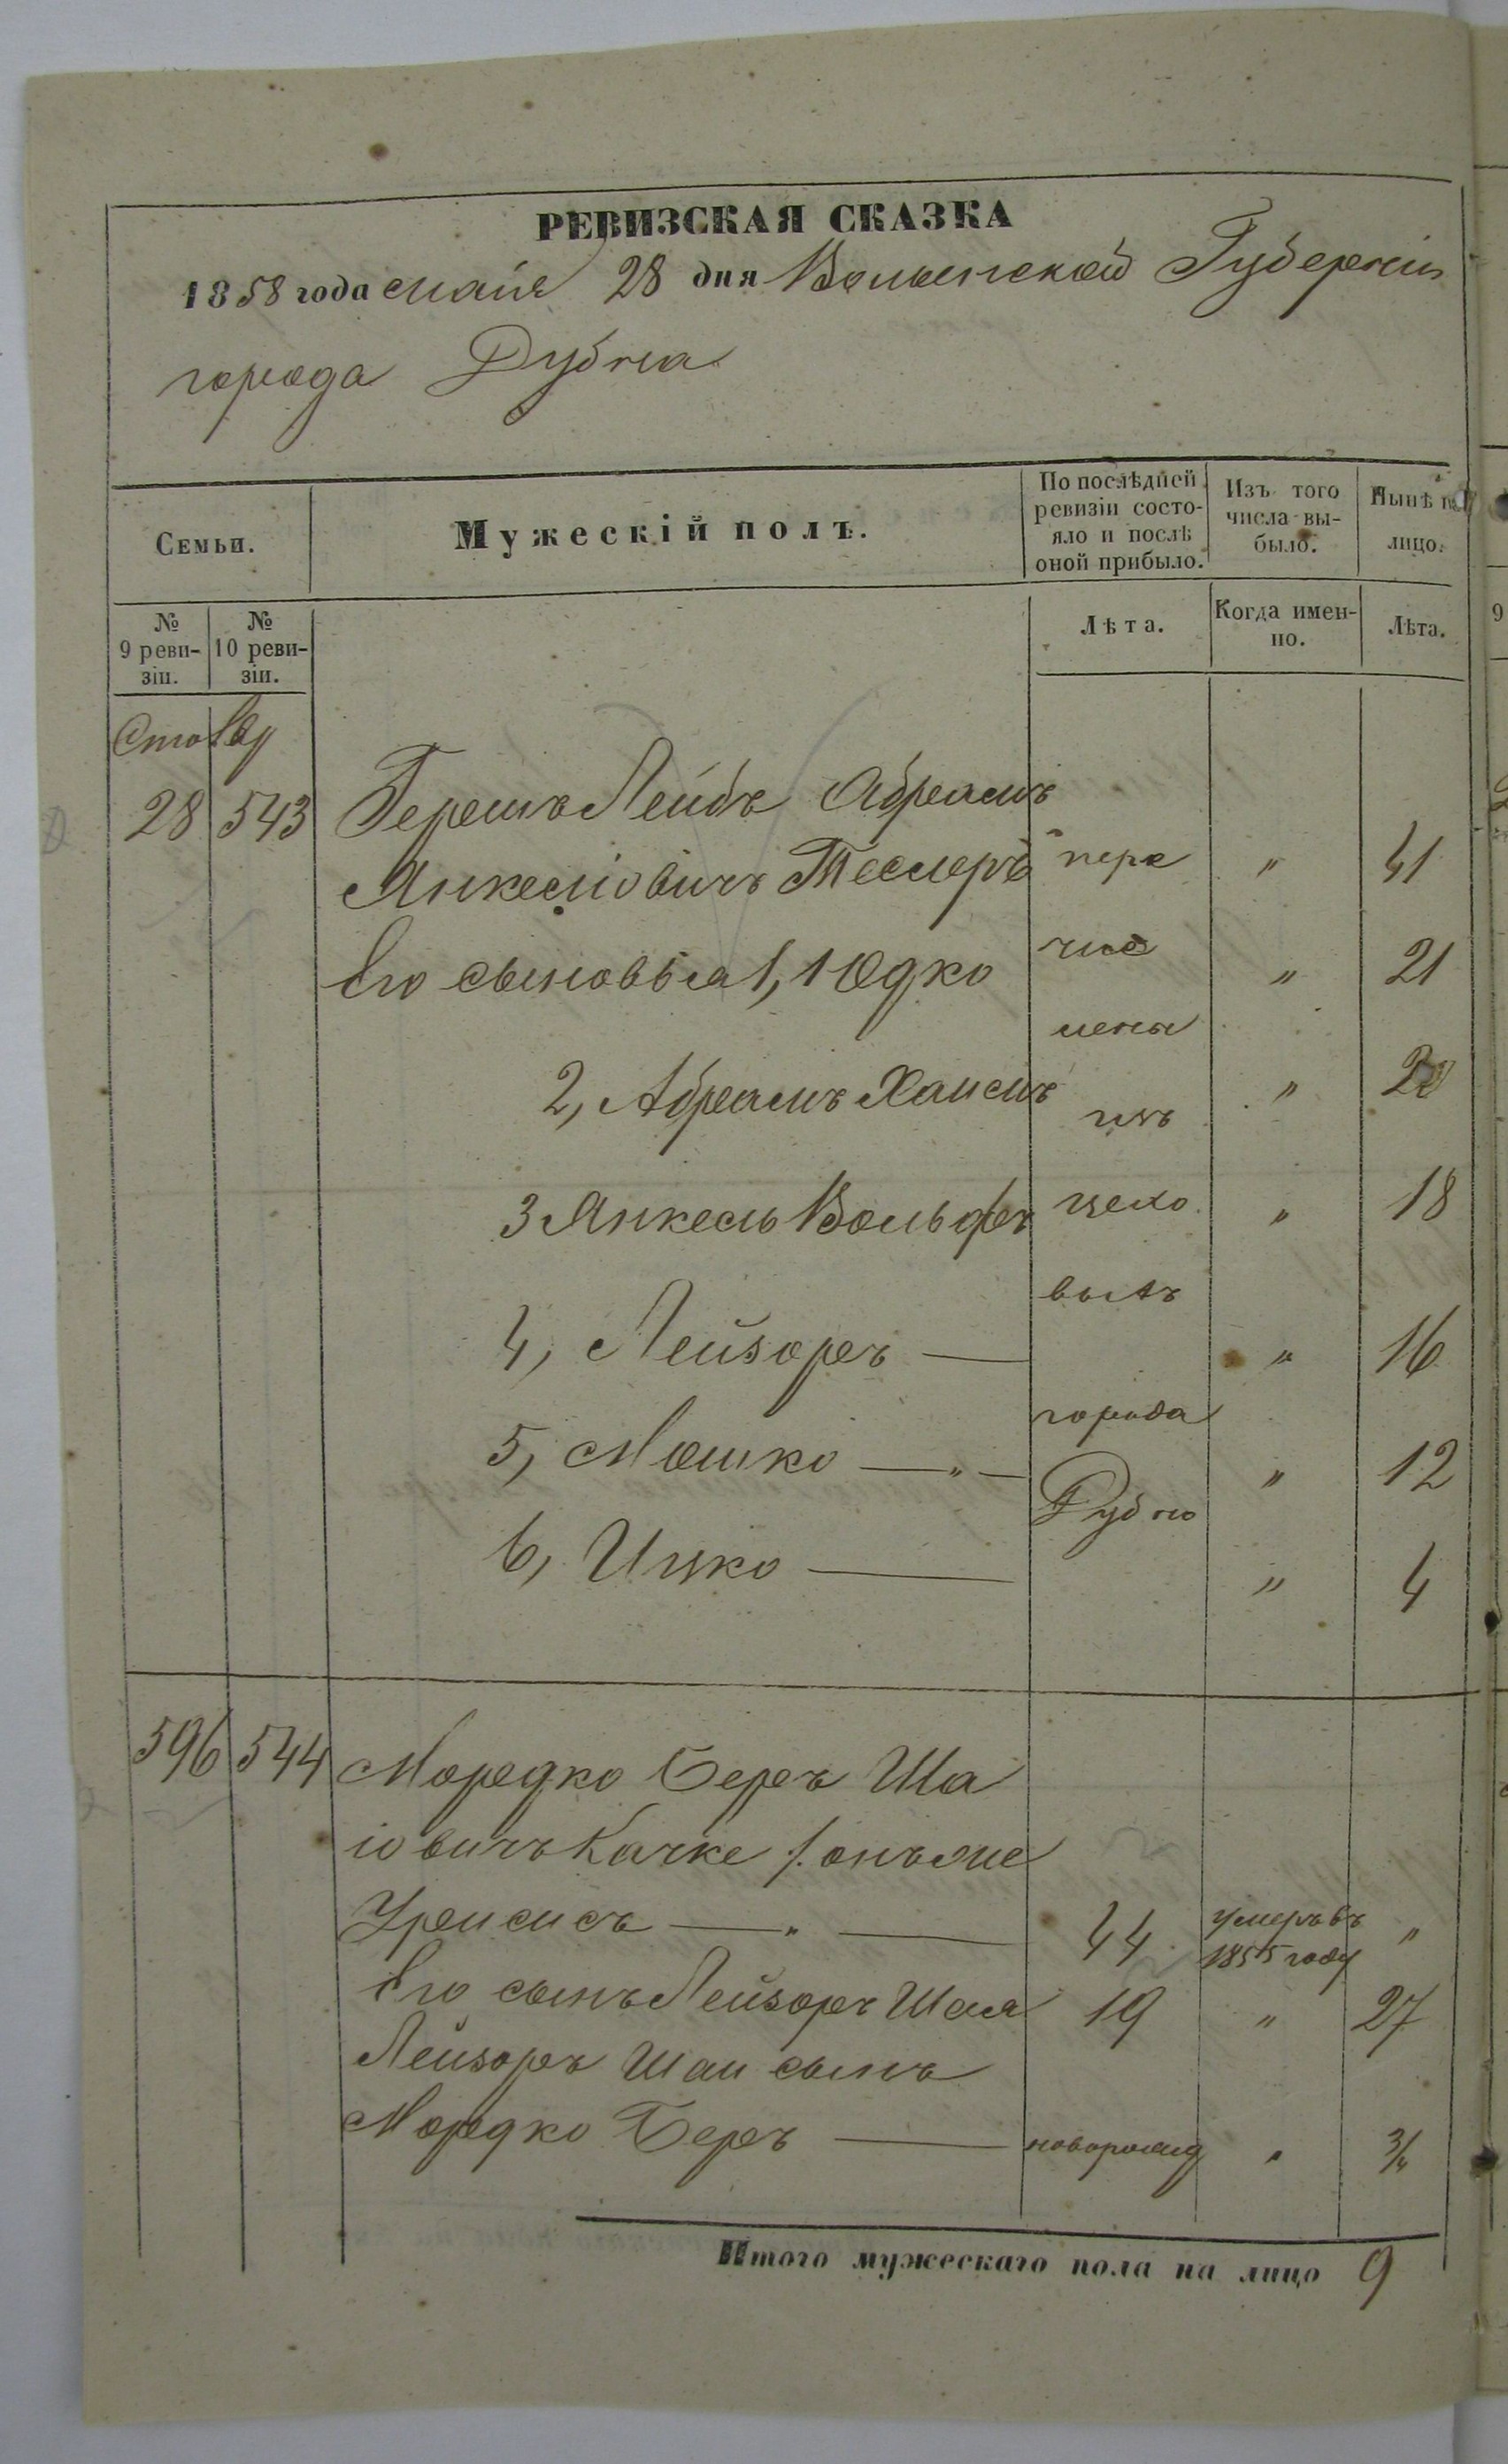 РЕВИЗСКАЯ СКАЗКА
1858 года мая 28 дня Волынской Губерніи
города Дубна
Семьи.
Мужескій полъ.
По послѣдней ревизіи состо-
яло и послѣ
оной прибыло.
Изъ того
числа вы-
было.
Нынѣ на
лицо.
№
9 реви-
зіи.
№
10 реви-
зіи.
Лѣта.
Когда имен-
но.
Лѣта.
28 543 Гершъ Лейбъ Абрамъ
Янкеліовичъ Теслеръ пере " 41
Его сыновья 1, Юдко чис " 21
лены
2, Абрамъ Хаимъ изъ " 20
3 Янкель Вольфъ цехо " 18
выхъ
4, Лейзоръ — " 16
города
5, Мошко — " — " 12
Дубно
6, Ицко — " 4
596 544 Мордко Беръ Ша
іовичъ Качке /. онъ же
— " — 44 умеръ въ 1855 году "
Его сынъ Лейзоръ Шая 19 " 27
Лейзоръ Шаи сынъ
Мордко Беръ — новорожд " 3/4
Итого мужескаго пола на лицо 9